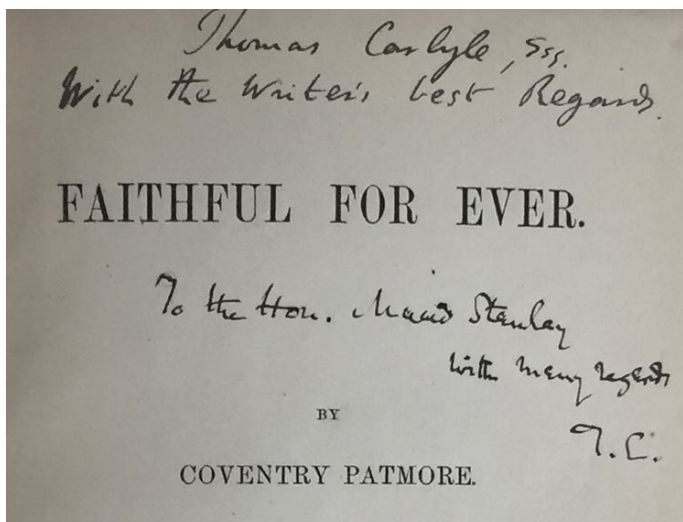 Thomas Carlyle, Esq.
With the Writer's best Regards.
FAITHFUL FOR EVER.
To the Hon. Maud Stanley
with many regards
T.C.
BY
COVENTRY PATMORE.